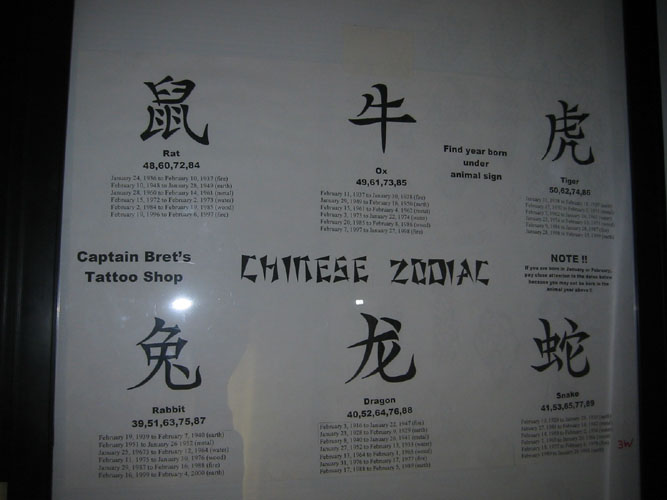 鼠
Rat
48,60,72,84
January 24, 1936 to February 10, 1937 (fire)
February 10, 1948 to January 28, 1949 (earth)
January 28, 1960 to February 14, 1961 (metal)
February 15, 1972 to February 2, 1973 (water)
February 2, 1984 to February 19, 1985 (wood)
February 19, 1996 to February 6, 1997 (fire)
牛
Ox
49,61,73,85
February 11, 1937 to January 30, 1938 (fire)
January 29, 1949 to February 16, 1950 (earth)
February 15, 1961 to February 4, 1962 (metal)
February 3, 1973 to January 22, 1974 (water)
February 20, 1985 to February 8, 1986 (wood)
February 7, 1997 to January 27, 1998 (fire)
Find year born
under
animal sign
虎
Tiger
50,62,74,86
Captain Bret's
Tattoo Shop
CHINESE ZODIAC
NOTE !!
If you are born in January or February,
pay close attention to the dates below
because you may not be born in the
animal year above !!
兔
Rabbit
39,51,63,75,87
February 19, 1939 to February 7, 1940 (earth)
February 1951 to January 26 1952 (metal)
January 25, 1963 to February 12, 1964 (water)
February 11, 1975 to January 30, 1976 (wood)
January 29, 1987 to February 16, 1988 (fire)
February 16, 1999 to February 4, 2000 (earth)
龙
Dragon
40,52,64,76,88
February 3, 1916 to January 22, 1917 (fire)
January 23, 1928 to February 9, 1929 (earth)
February 8, 1940 to January 26, 1941 (metal)
January 27, 1952 to February 13, 1953 (water)
February 13, 1964 to February 1, 1965 (wood)
January 31, 1976 to February 17, 1977 (fire)
February 17, 1988 to February 5, 1989 (earth)
蛇
Snake
41,53,65,77,89
3W